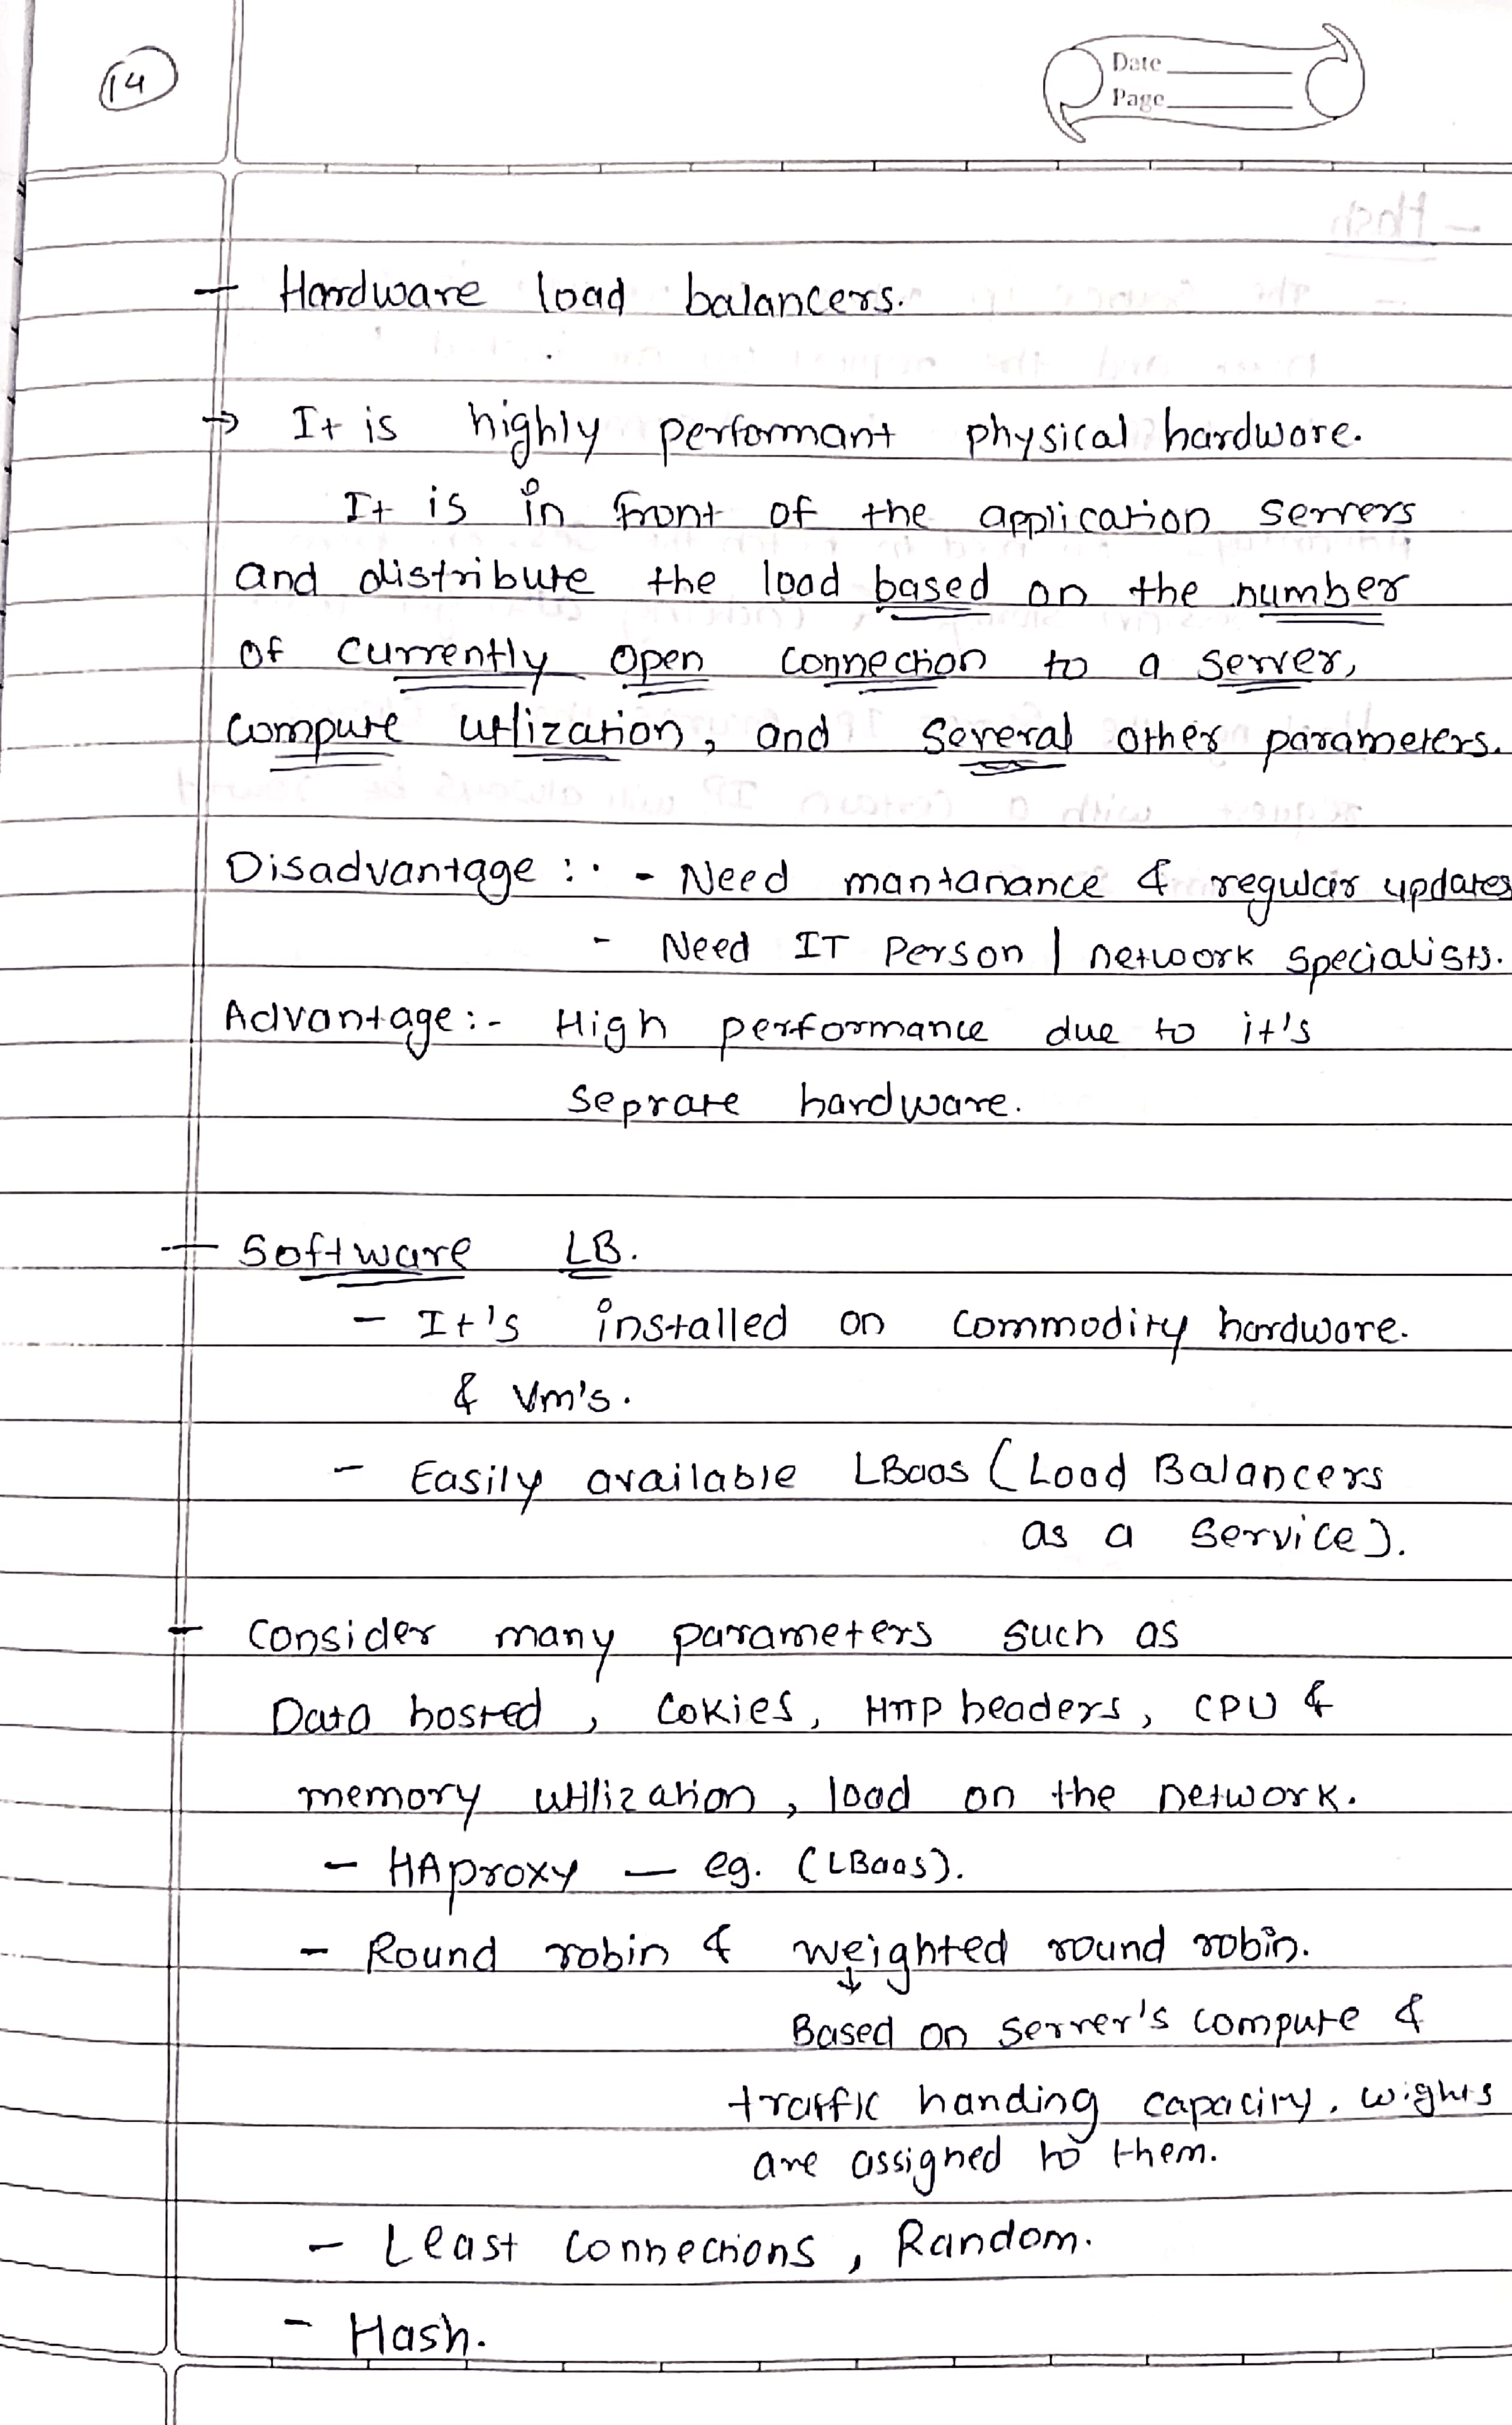 14
Date
Page
- Hardware load balancers.
→ It is highly performant physical hardware.
It is in front of the application servers
and distribute the load based on the number
of currently open connection to a server,
compute utlization, and several other parameters.
Disadvantage :- - Need mantanance & regular updates
- Need IT Person | network specialists.
Advantage :- High performance due to it's
seprate hardware.
- Software LB.
- It's installed on commodity hardware.
& Vm's.
- Easily available LBaas (Load Balancers
as a service).
- Consider many parameters such as
Data hosted, Cokies, Http headers, CPU &
memory utilization, load on the network.
- HAproxy - eg. (LBaas).
- Round robin & weighted round robin.
↓
Based on server's compute &
traffic handing capacity. wights
are assigned to them.
- Least connections, Random.
- Hash.